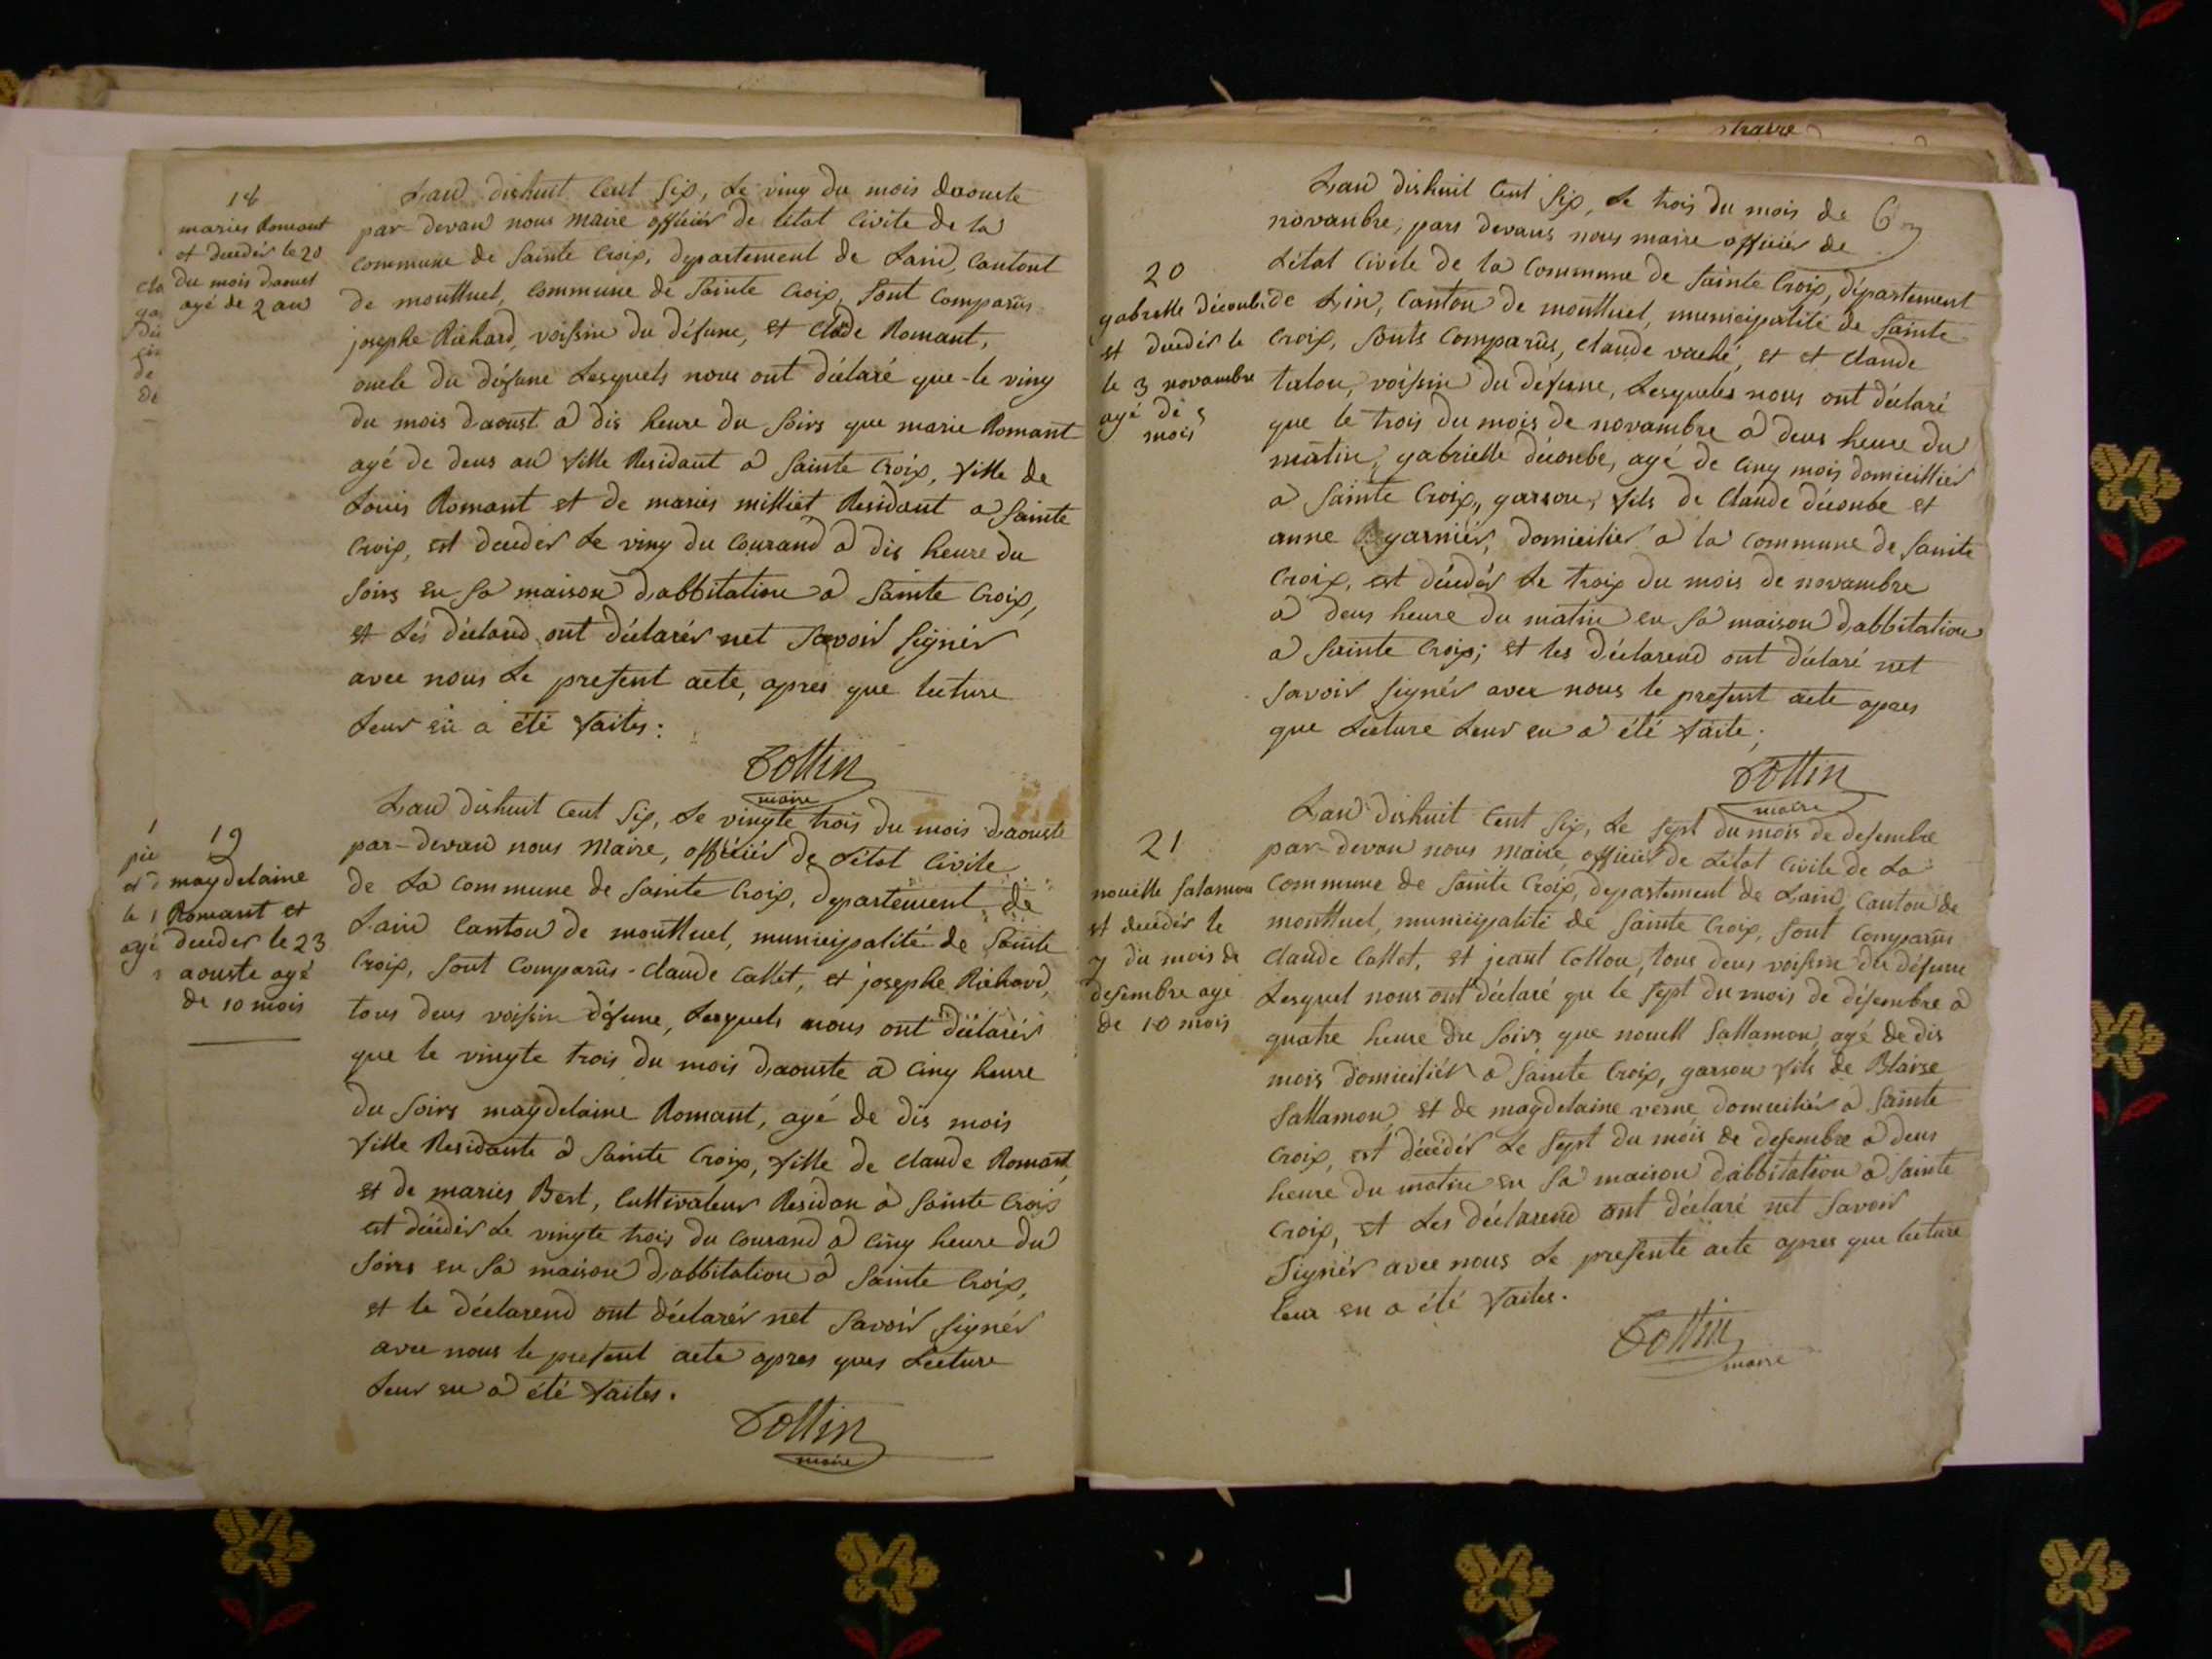 18
maries Romant
et deceder le 20
du mois daoust
agé de 2 an
Lan dishuit Cent Six, Le vinq du mois daouste
par-devan nous maire officier de létat Civile de la
Commune de Sainte Croix, departement de Lain, Cantont
de montluel, Commune de Sainte Croix, Sont Comparûs
josephe Richard, voissin du défune, et Clode Romant,
oncle du défune Lesquels nous ont déclaré que-le vinq
du mois daoust a dis heure du Soirs que marie Romant
agé de deus an fille Residant a Sainte Croix, fille de
Louis Romant et de maries milliet Residant a Sainte
Croix, est deceder Le vinq du Courand a dis heure du
Soirs en Sa maison dabbitation a Sainte Croix,
et Lés déclarand ont déclarér net Savoir Signér
avec nous Le present acte, apres que lecture
Leur en a été faites:
Tottin
maire
19
magdelaine
Romant et
deceder le 23
aouste agé
de 10 mois
Lan dishuit Cent Six, Le vingte trois du mois daouste
par-devan nous Maire, officiér de Létat Civile
de La Commune de Sainte Croix, departement de
Lain Canton de montluel, municipalité de Sainte
Croix, Sont Comparûs-Claude Callet, et josephe Richard,
tous deus voissin défune, Lesquels nous ont déclarér
que le vingte trois du mois daouste a Cinq heure
du Soirs magdelaine Romant, agé de dis mois
fille Residante a Sainte Croix, fille de Claude Romant
et de maries Best, Cultivateur Residan a Sainte Croix
est décédér Le vingte trois du Courand a Cinq heure du
Soirs en Sa maison dabbitation a Sainte Croix,
et le déclarend ont déclarér net Savoir Signér
avec nous le present acte apres ques Lecture
Leur en a été faites.
Tottin
maire
maire
6
20
gabrelle décombe
et decedér le
le 3 novambre
agé de 5
mois
Lan dishuit Cent Six, Le trois du mois de
novambre, pars devans nous maire officiér de
Létat Civile de la Commune de Sainte Croix, département
de Lin, Canton de montluel, municipalité de Sainte
Croix, Sonts Comparûs, Claude vaché, et et Claude
talon, voissin du défune, Lesqueles nous ont déclaré
que le trois du mois de novambre a deus heure du
matin, gabrielle décombe, agé de Cinq mois domicilliér
a Sainte Croix, garson, fils de Claude décombe et
anne garniér, domiciliér a la Commune de Sainte
Croix, est décédér Le troix du mois de novambre
a deus heure du matin en Sa maison dabbitation
a Sainte Croix; et les déclarend ont déclaré net
Savoir Signér avec nous le present acte apres
que Lecture Leur en a été faite;
Tottin
maire
21
nouelle Salamon
et decedér le
7 du mois de
desembre agé
de 10 mois
Lan dishuit Cent Six, Le Sept du mois de desembre
par-devan nous maire officier de Létat Civile de La
Commune de Sainte Croix, departement de Lain, Canton de
montluel, municipalité de Sainte Croix, Sont Comparûs
Claude Callet, et jeant Collon, tous deus voissin du défune
Lesquel nous ont déclaré qu le Sept du mois de désembre a
quatre heure du Soirs que nouell Sallamon, agé de dis
mois domiciliér a Sainte Croix, garson fils de Blaise
Sallamon, et de magdelaine verne domiciliér a Sainte
Croix, est décédér Le Sept du mois de desembre a deus
heure du matin en Sa maison dabbitation a Sainte
Croix, et Les déclarend ont déclaré net Savoir
Signér avec nous Le presente acte apres que lecture
leur en a été faites.
Tottin
maire